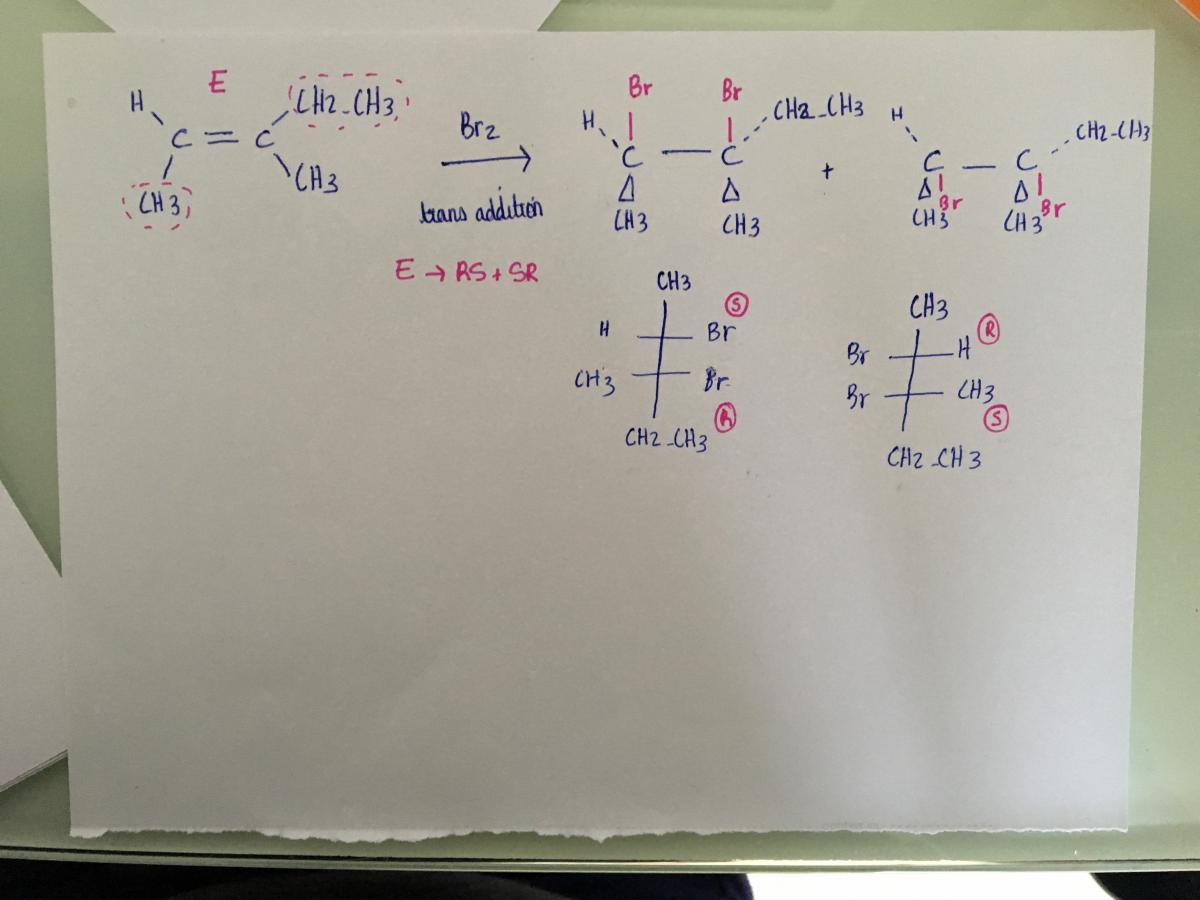 E
H CH2-CH3
C = C
CH3 CH3
Br2
trans addition
E → RS + SR
Br Br
H CH2-CH3
C — C
CH3 CH3
+
H CH2-CH3
C — C
Br Br
CH3 CH3
CH3
S
H Br
CH3 Br
R
CH2-CH3
CH3
R
Br H
Br CH3
S
CH2-CH3